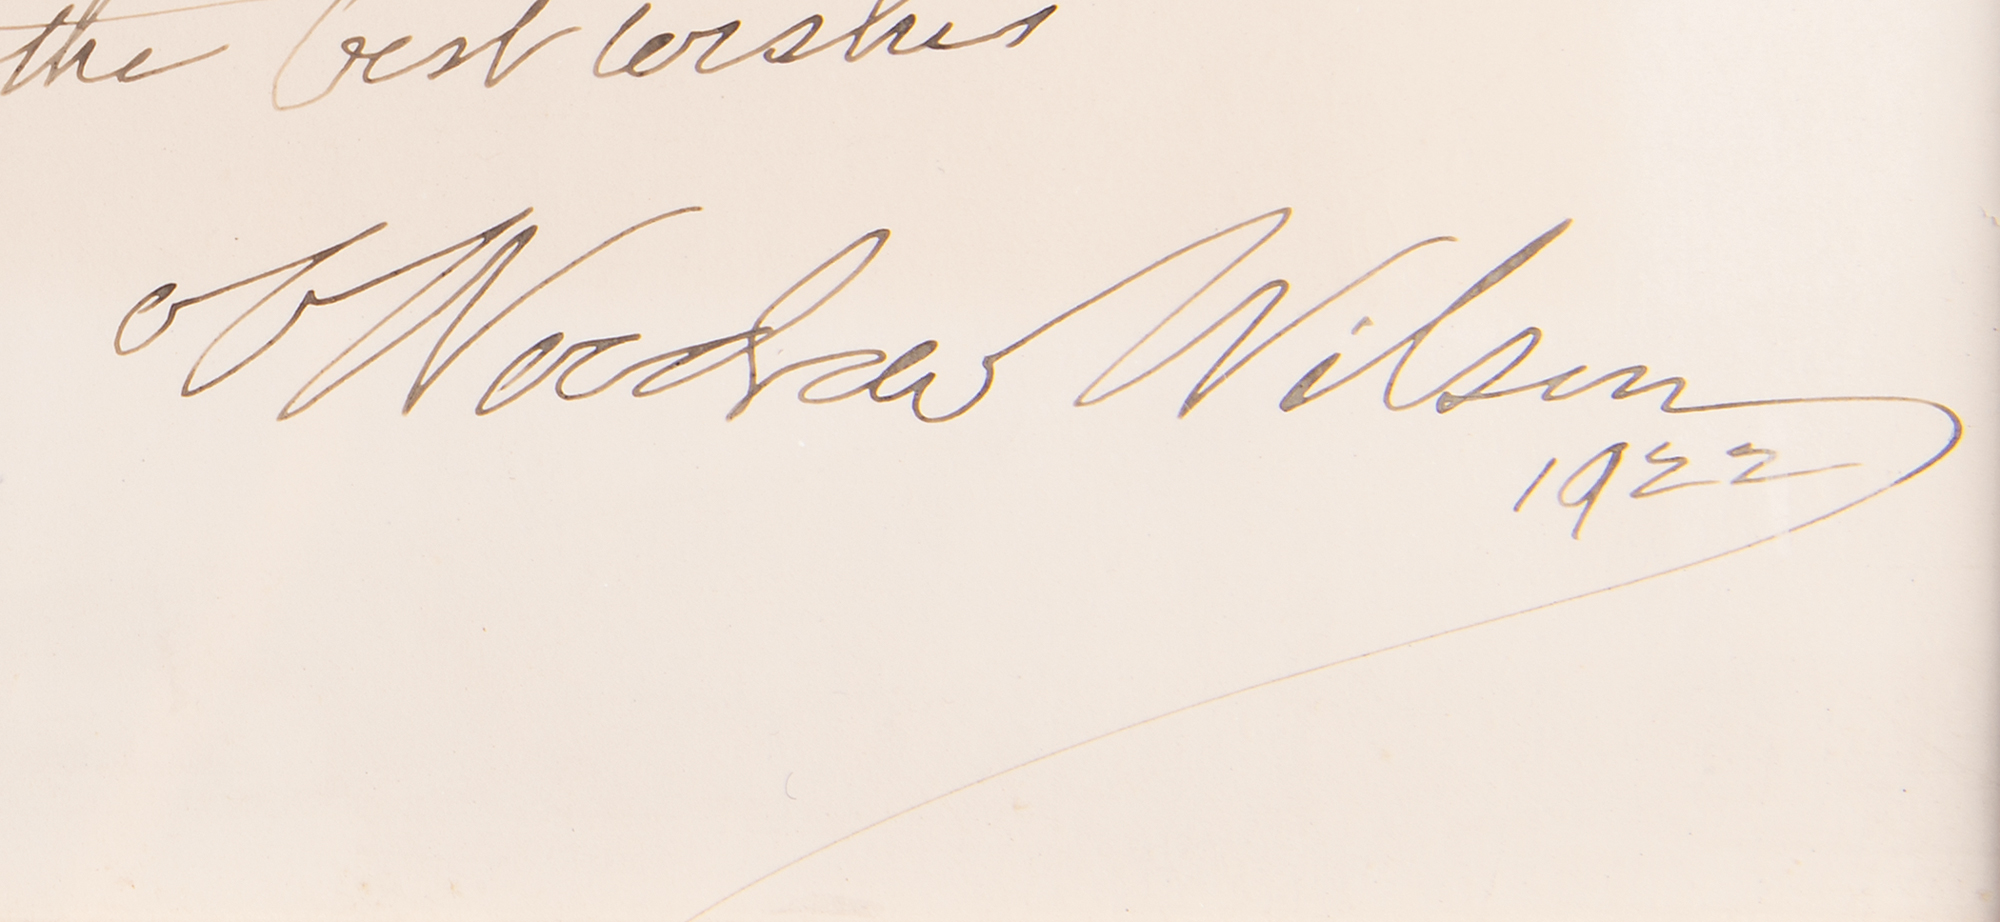 the best wishes
of Woodrow Wilson
1922